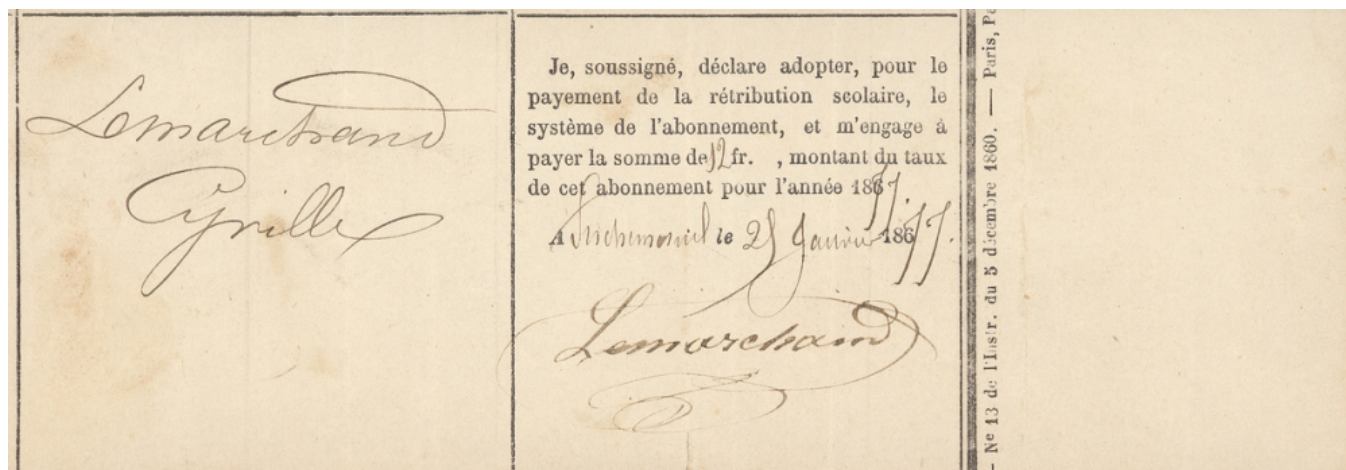 Lemarchand
Cyrille
Je, soussigné, déclare adopter, pour le
payement de la rétribution scolaire, le
système de l'abonnement, et m'engage à
payer la somme de 12 fr. , montant du taux
de cet abonnement pour l'année 1877.
A le 25 Janvier 1877.
Lemarchand
- No 13 de l'Instr. du 5 décembre 1860. — Paris,